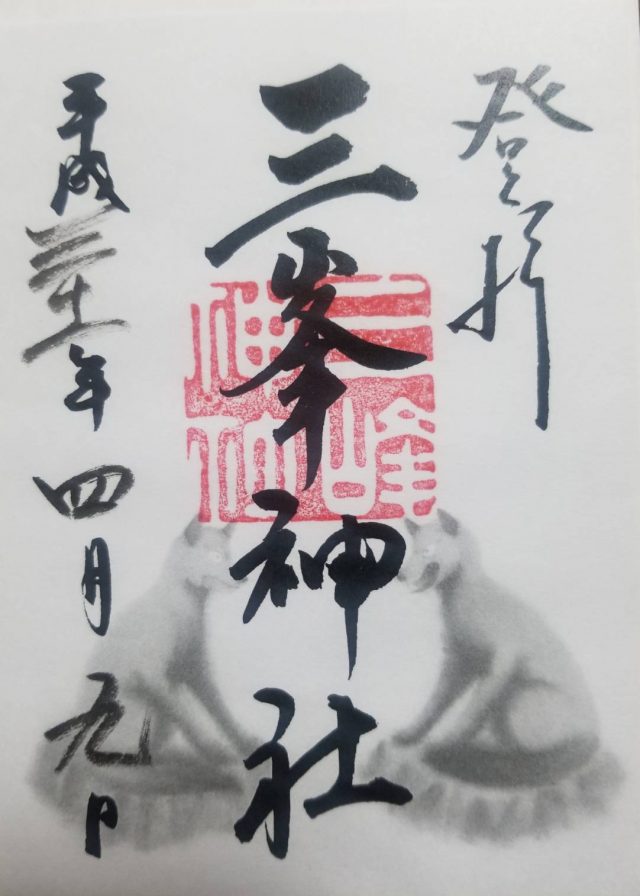 登拝
三峯神社
平成三十一年四月九日